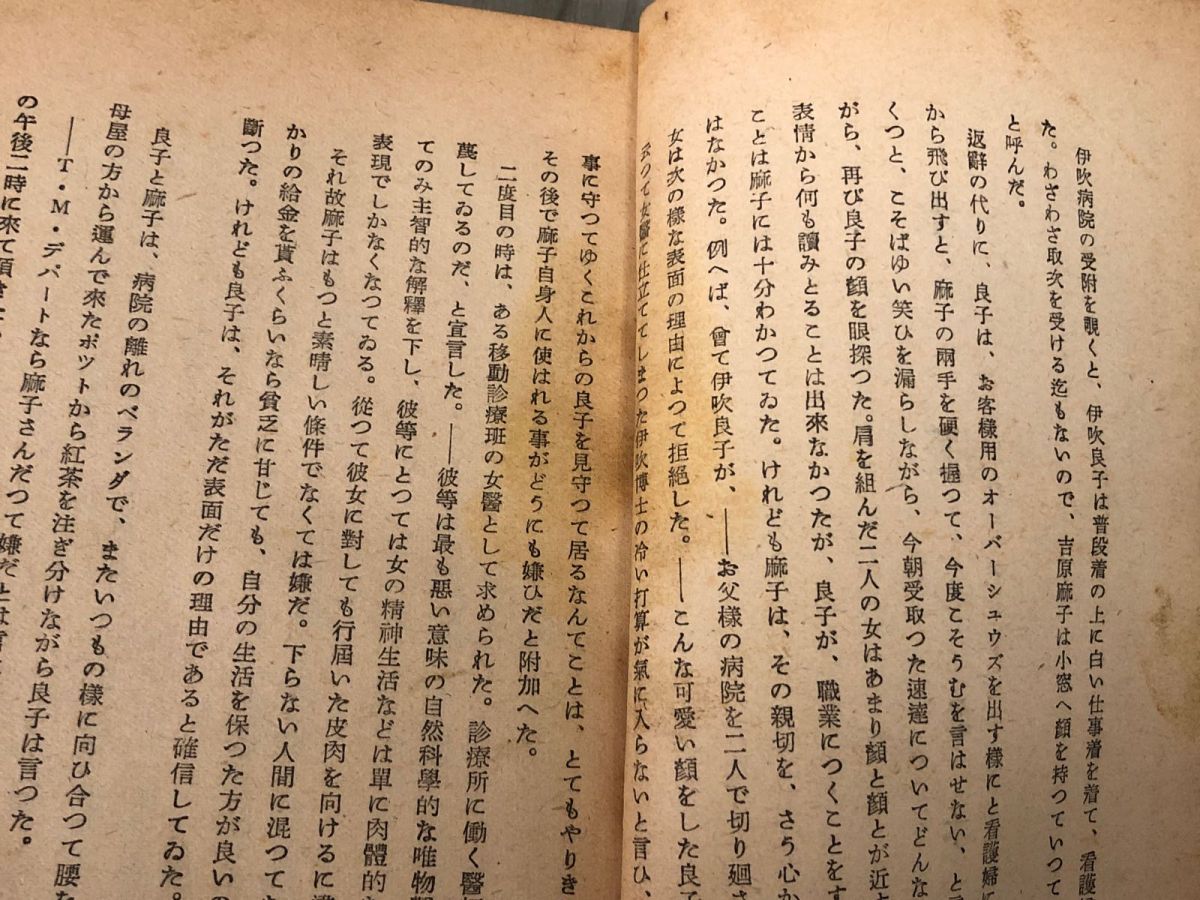 伊吹病院の受附を覗くと、伊吹良子は普段着の上に白い仕事着を着て、看護
た。わざわざ取次を受ける迄もないので、吉原麻子は小窓へ顔を持つていつて
と呼んだ。
返辭の代りに、良子は、お客様用のオーバーシュウズを出す様にと看護婦に
から飛び出すと、麻子の兩手を硬く握つて、今度こそうむを言はせない、と
くつと、こそばゆい笑ひを漏らしながら、今朝受取つた速達についてどんな
がら、再び良子の顔を眼探つた。肩を組んだ二人の女はあまり顔と顔とが近
表情から何も讀みとることは出來なかつたが、良子が、職業につくことをす
ことは麻子には十分わかつてゐた。けれども麻子は、その親切を、さう心か
はなかつた。例へば、曾て伊吹良子が、――お父樣の病院を二人で切り廻さ
女は次の樣な表面の理由によつて拒絕した。――こんな可愛い顔をした良子
つて女醫に仕立ててしまつた伊吹博士の冷い打算が氣に入らないと言ひ、
事に守つてゆくこれからの良子を見守つて居るなんてことは、とてもやりき
その後で麻子自身人に使はれる事がどうにも嫌ひだと附加へた。
二度目の時は、ある移動診療班の女醫として求められた。診療所に働く醫
蔑してゐるのだ、と宣言した。――彼等は最も惡い意味の自然科學的な唯物
てのみ主智的な解釋を下し、彼等にとつては女の精神生活などは單に肉體的
表現でしかなくなつてゐる。從つて彼女に對しても行屆いた皮肉を向けるに
それ故麻子はもつと素晴しい條件でなくては嫌だ。下らない人間に混つて
かりの給金を貰ふくらいなら貧乏に甘じても、自分の生活を保つた方が良いの
斷つた。けれども良子は、それがただ表面だけの理由であると確信してゐた。
良子と麻子は、病院の離れのベランダで、またいつもの樣に向ひ合つて腰
母屋の方から運んで來たポットから紅茶を注ぎ分けながら良子は言つた。
――T・M・デパートなら麻子さんだつて嫌だとは言
の午後二時に來て頂